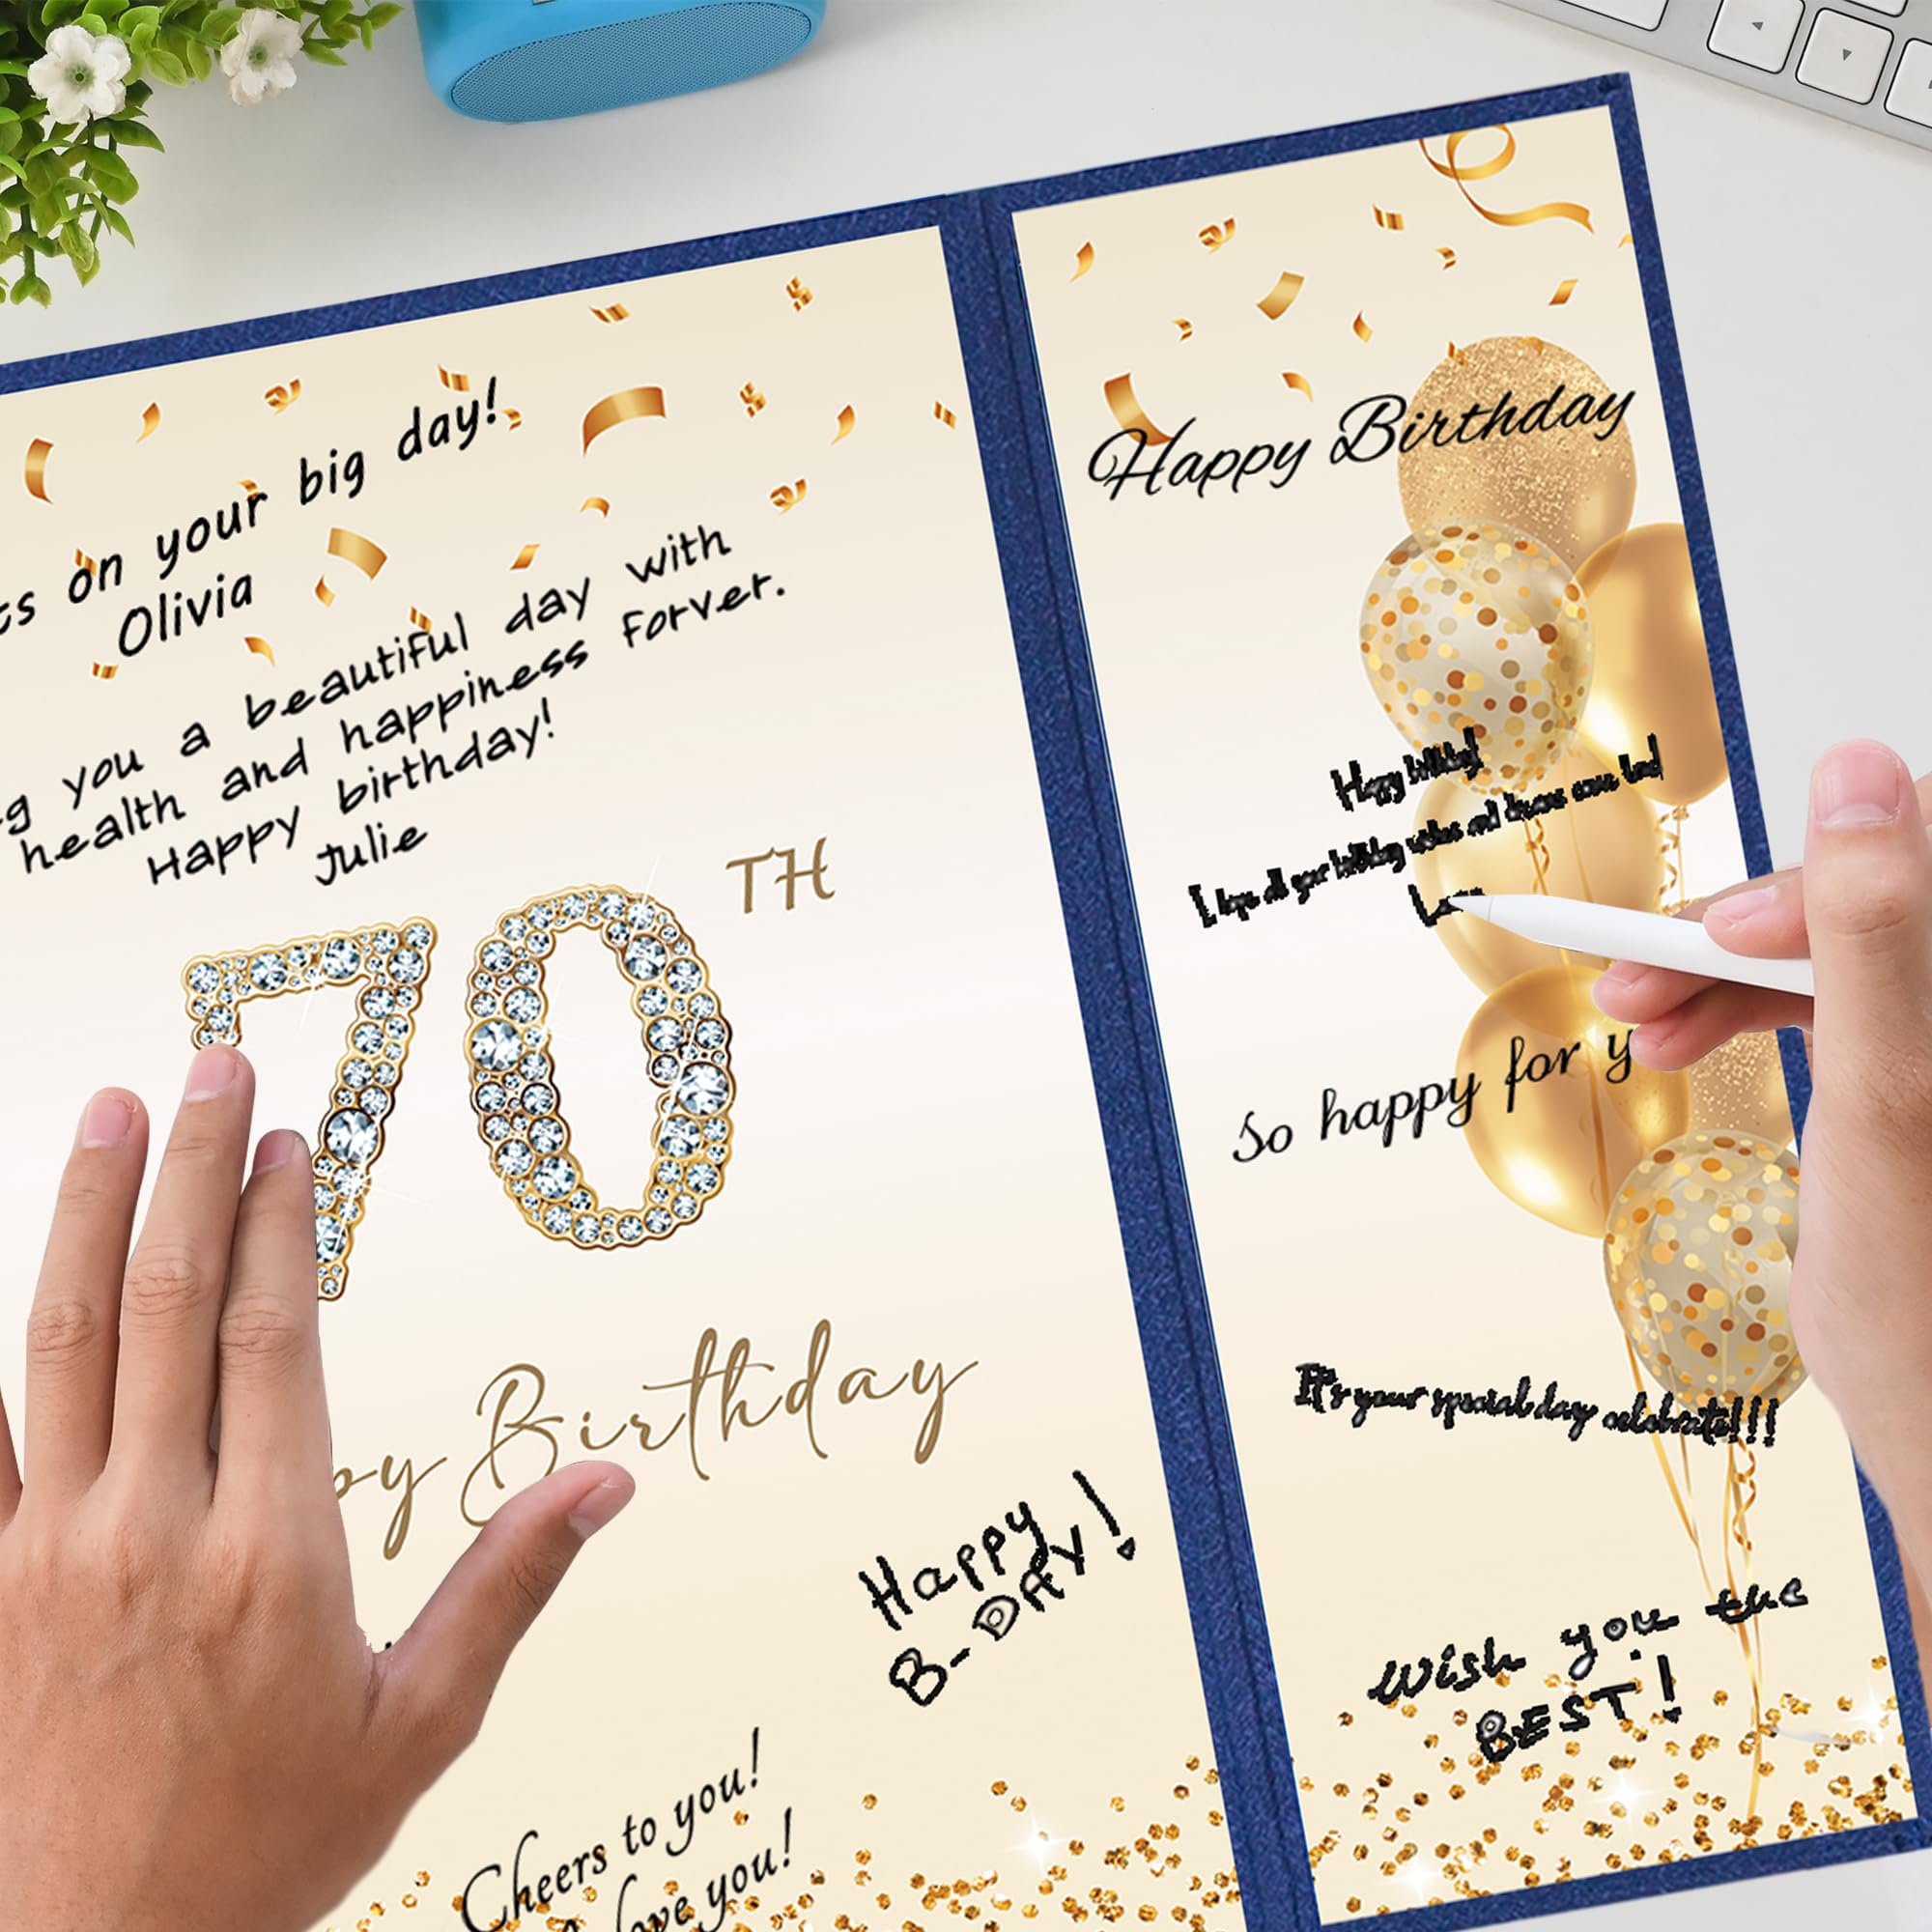 ts on your big day!
Olivia
g you a beautiful day with
health and happiness forver.
Happy birthday!
Julie
70 TH
py Birthday
Happy
B-DAY!
Cheers to you!
love you!
Happy Birthday
Happy birthday!
I hope all your birthday wishes and dreams come true!
So happy for y
It's your special day celebrate!!!
Wish you the
BEST!